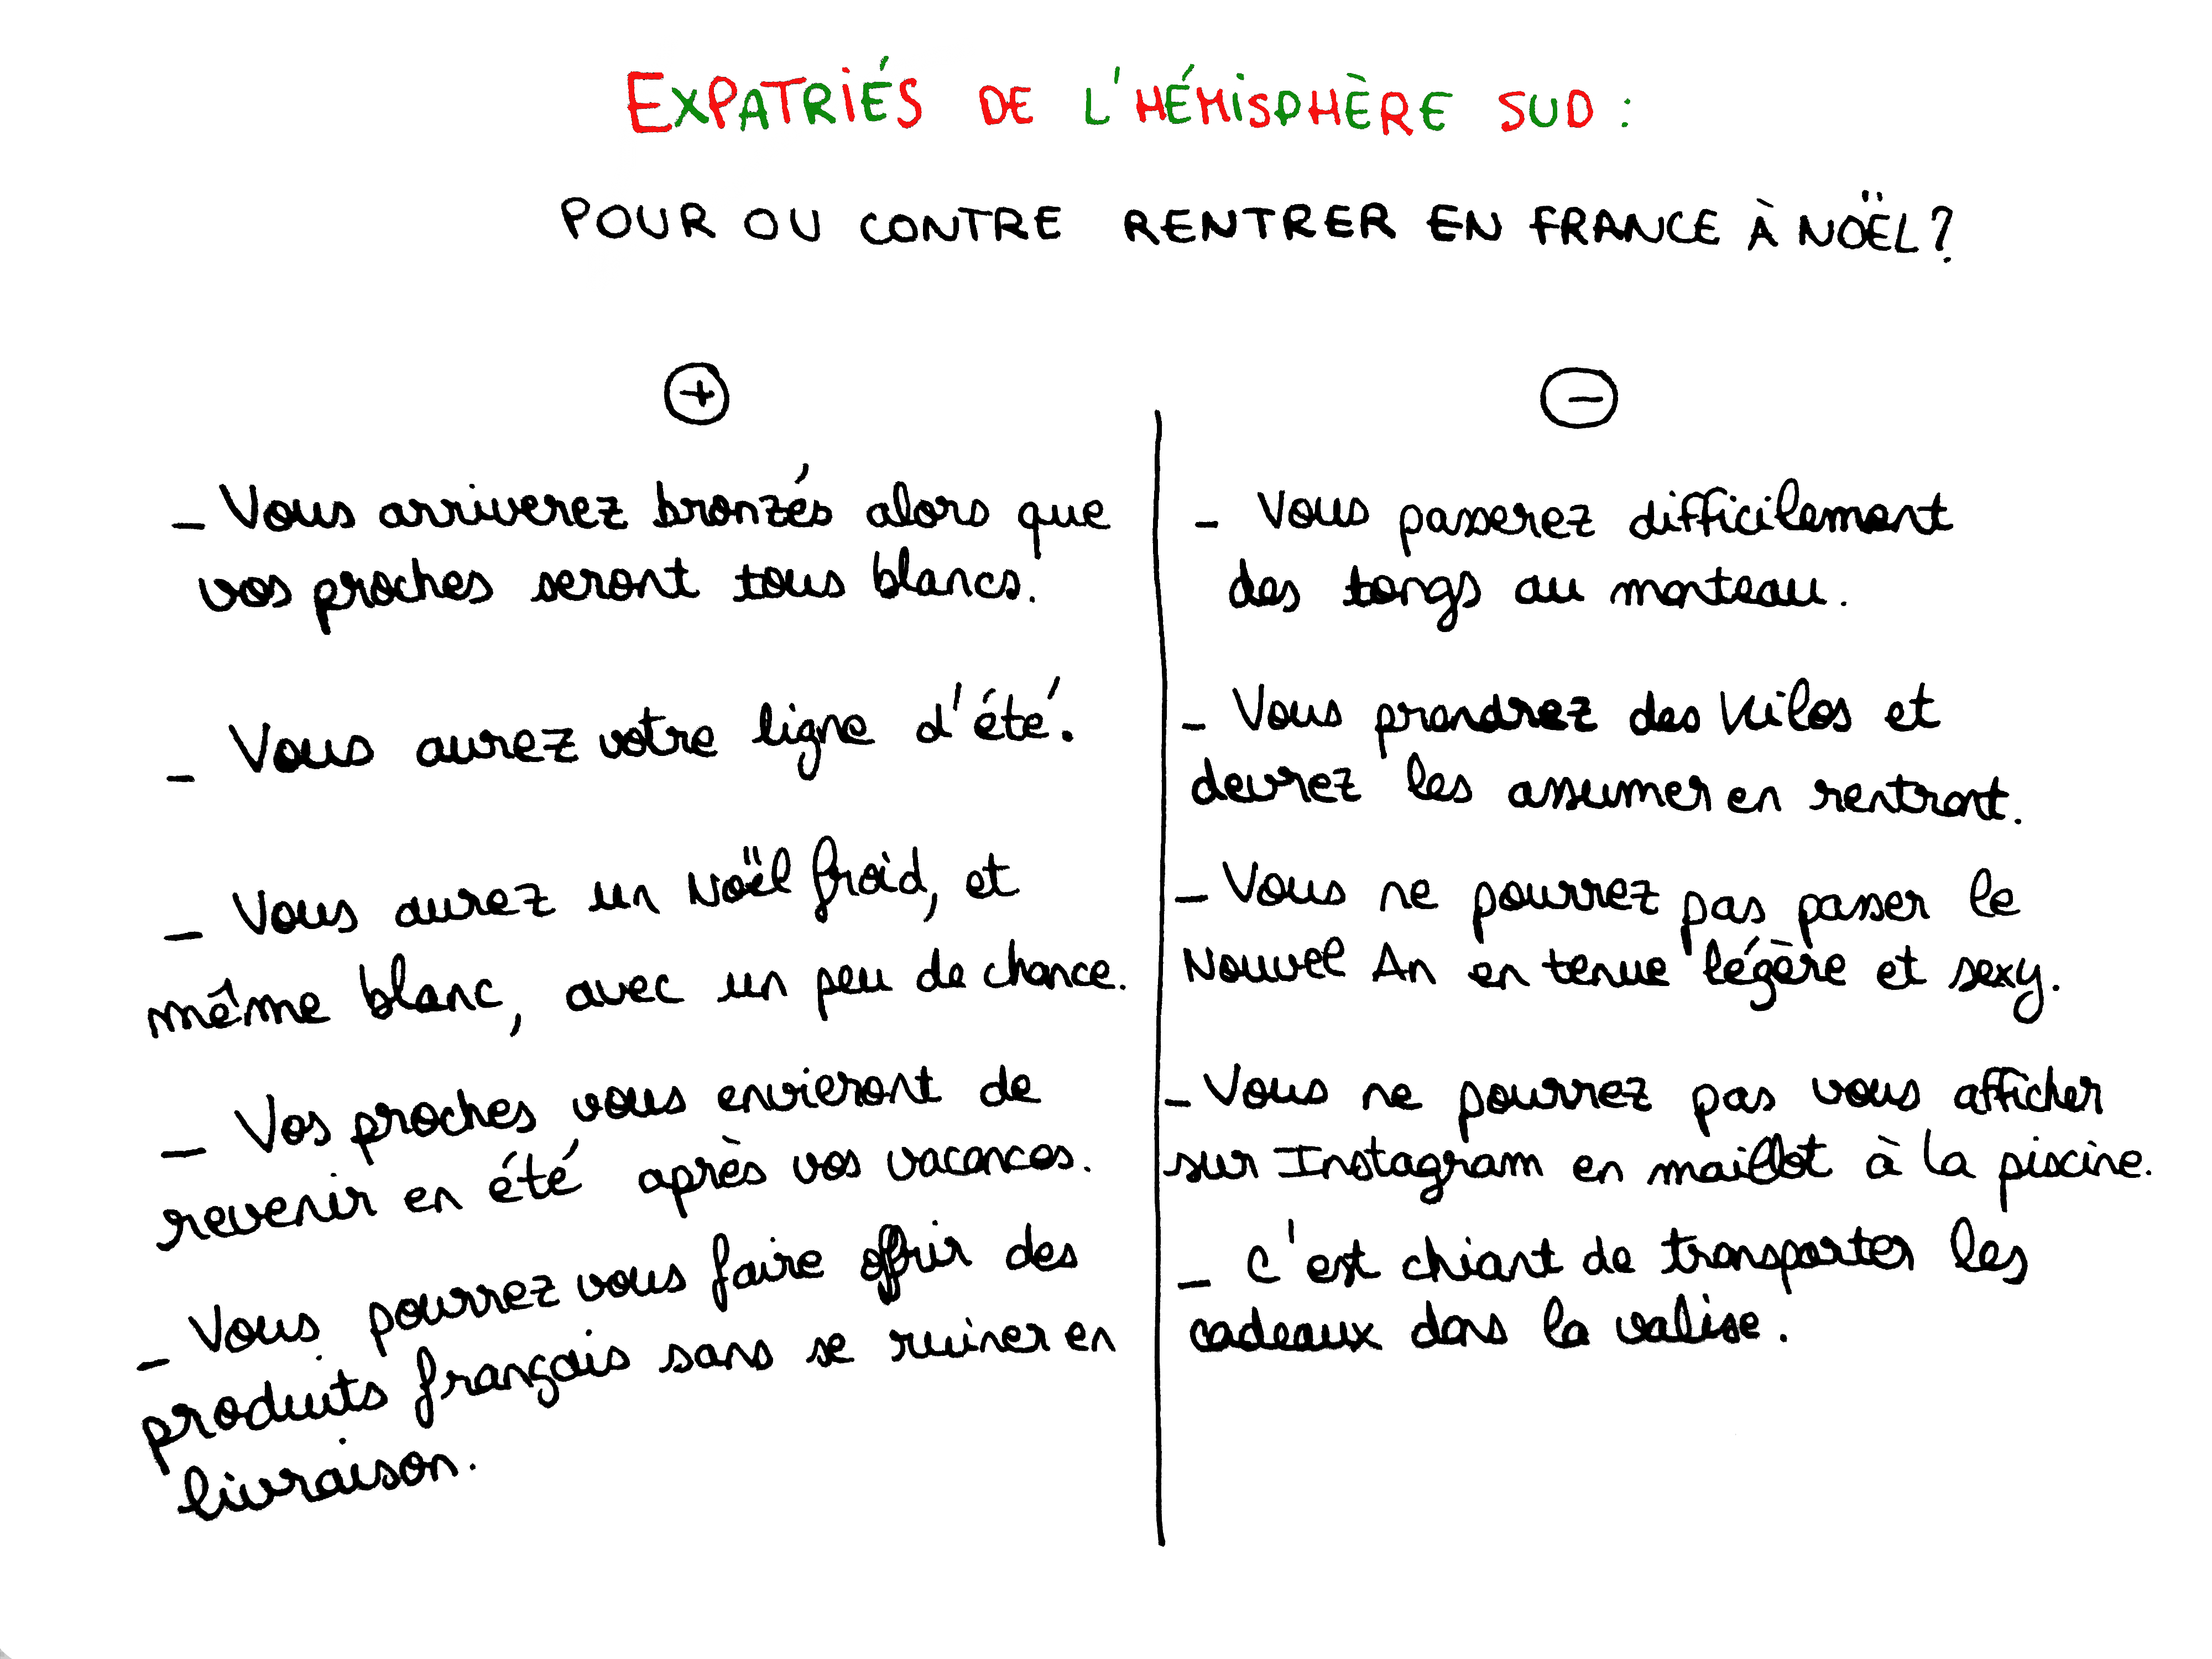 EXPATRIÉS DE L'HÉMISPHÈRE SUD :
POUR OU CONTRE RENTRER EN FRANCE À NOËL ?
+
- Vous arriverez bronzés alors que
vos proches seront tous blancs.
- Vous aurez votre ligne d'été.
- Vous aurez un Noël froid, et
même blanc, avec un peu de chance.
- Vos proches vous envieront de
revenir en été après vos vacances.
- Vous pourrez vous faire offrir des
produits français sans se ruiner en
livraison.
-
- Vous passerez difficilement
des tongs au manteau.
- Vous prendrez des kilos et
devrez les assumer en rentrant.
- Vous ne pourrez pas passer le
Nouvel An en tenue légère et sexy.
- Vous ne pourrez pas vous afficher
sur Instagram en maillot à la piscine.
- C'est chiant de transporter les
cadeaux dans la valise.